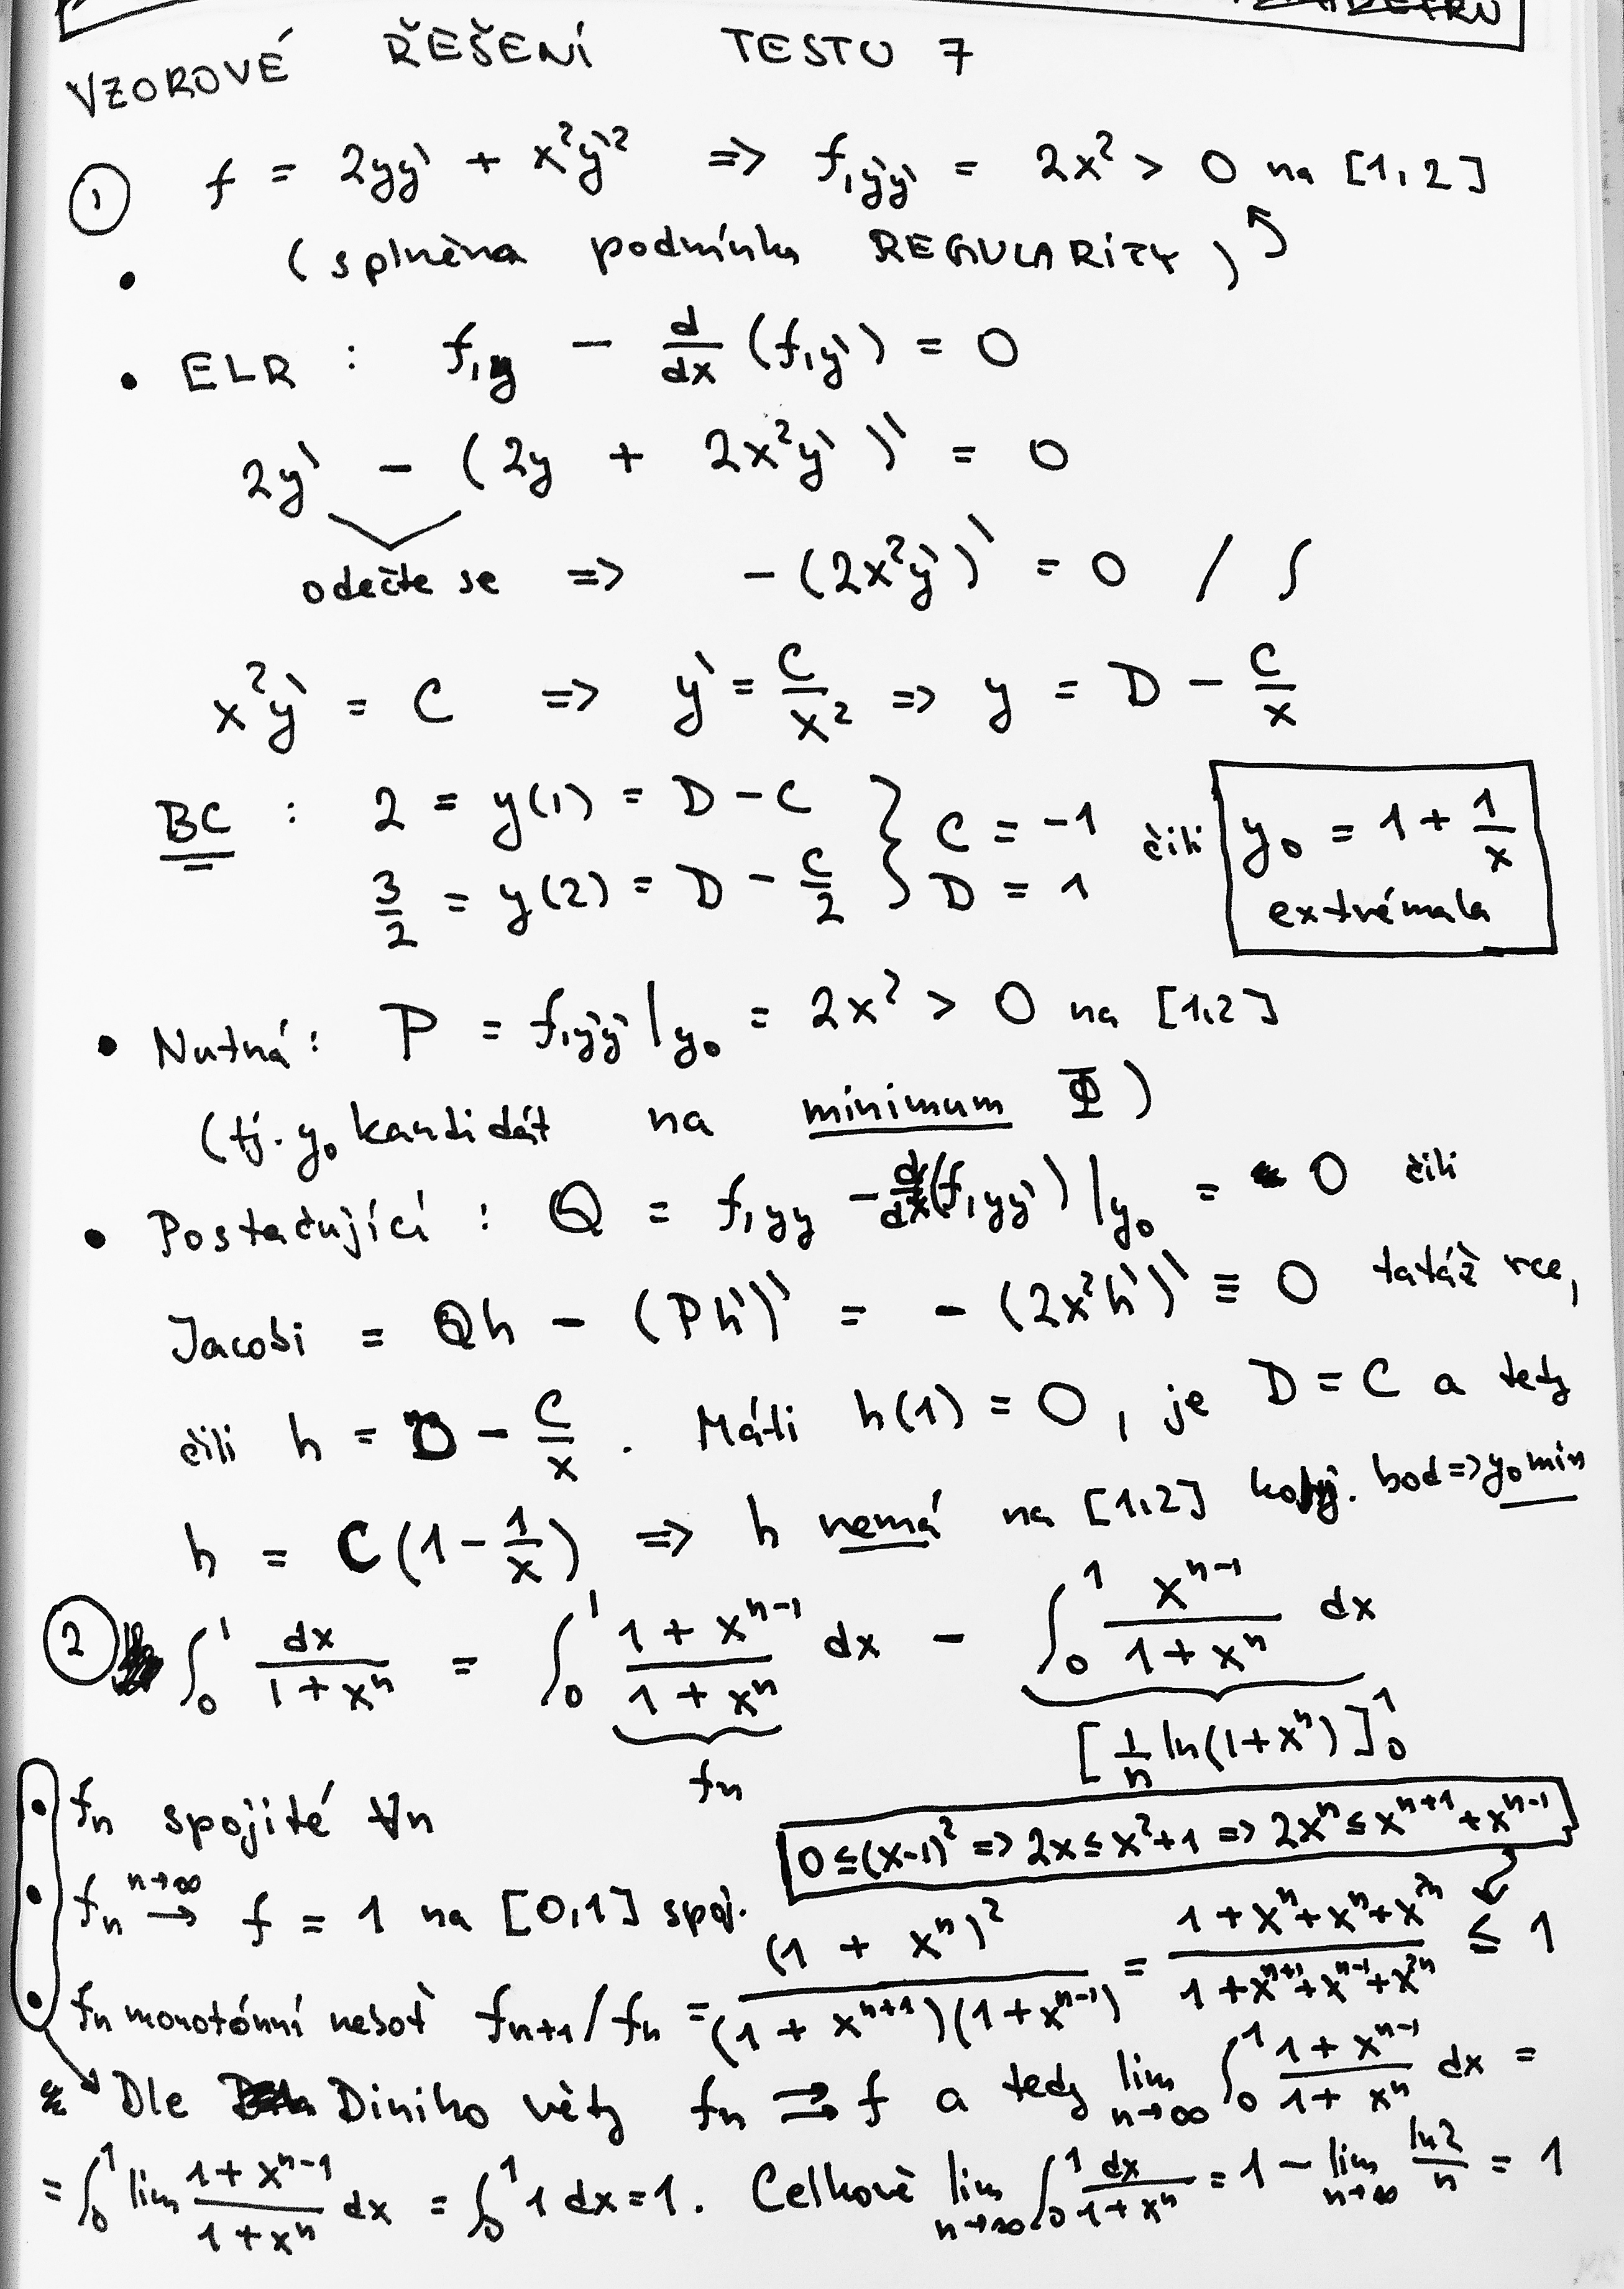 VZOROVÉ ŘEŠENÍ TESTU 7
① f = 2yy' + x²y'² => f,y'y' = 2x² > 0 na [1,2]
• (splněna podmínka REGULARITY)
• ELR : f,y − d/dx (f,y') = 0
2y' − (2y + 2x²y')' = 0
odečte se => −(2x²y')' = 0 / ∫
x²y' = C => y' = C/x² => y = D − C/x
BC : 2 = y(1) = D − C } C = −1 čili y₀ = 1 + 1/x
3/2 = y(2) = D − C/2 } D = 1 extrémala
• Nutná: P = f,y'y'|y₀ = 2x² > 0 na [1,2]
(tj. y₀ kandidát na minimum Φ)
• Postačující : Q = f,yy − d/dx(f,yy')|y₀ = 0 čili
Jacobi = Qh − (Ph')' = −(2x²h')' ≡ 0 tatáž rce,
čili h = D − C/x. Máli h(1) = 0, je D = C a tedy
h = C(1 − 1/x) => h nemá na [1,2] konj. bod => y₀ min
② ∫₀¹ dx/(1+xⁿ) = ∫₀¹ (1+xⁿ⁻¹)/(1+xⁿ) dx − ∫₀¹ xⁿ⁻¹/(1+xⁿ) dx
fₙ [1/n ln(1+xⁿ)]₀¹
• fₙ spojité ∀n
0 ≤ (x−1)² => 2x ≤ x²+1 => 2xⁿ ≤ xⁿ⁺¹ + xⁿ⁻¹
• fₙ →(n→∞) f = 1 na [0,1] spoj.
• fₙ monotónní neboť fₙ₊₁/fₙ = (1 + xⁿ)²/((1 + xⁿ⁺¹)(1+xⁿ⁻¹)) = (1+xⁿ+xⁿ+x²ⁿ)/(1+xⁿ⁺¹+xⁿ⁻¹+x²ⁿ) ≤ 1
Dle Diniho věty fₙ ⇉ f a tedy lim n→∞ ∫₀¹ (1+xⁿ⁻¹)/(1+xⁿ) dx =
= ∫₀¹ lim (1+xⁿ⁻¹)/(1+xⁿ) dx = ∫₀¹ 1 dx = 1. Celkově lim n→∞ ∫₀¹ dx/(1+xⁿ) = 1 − lim n→∞ ln2/n = 1